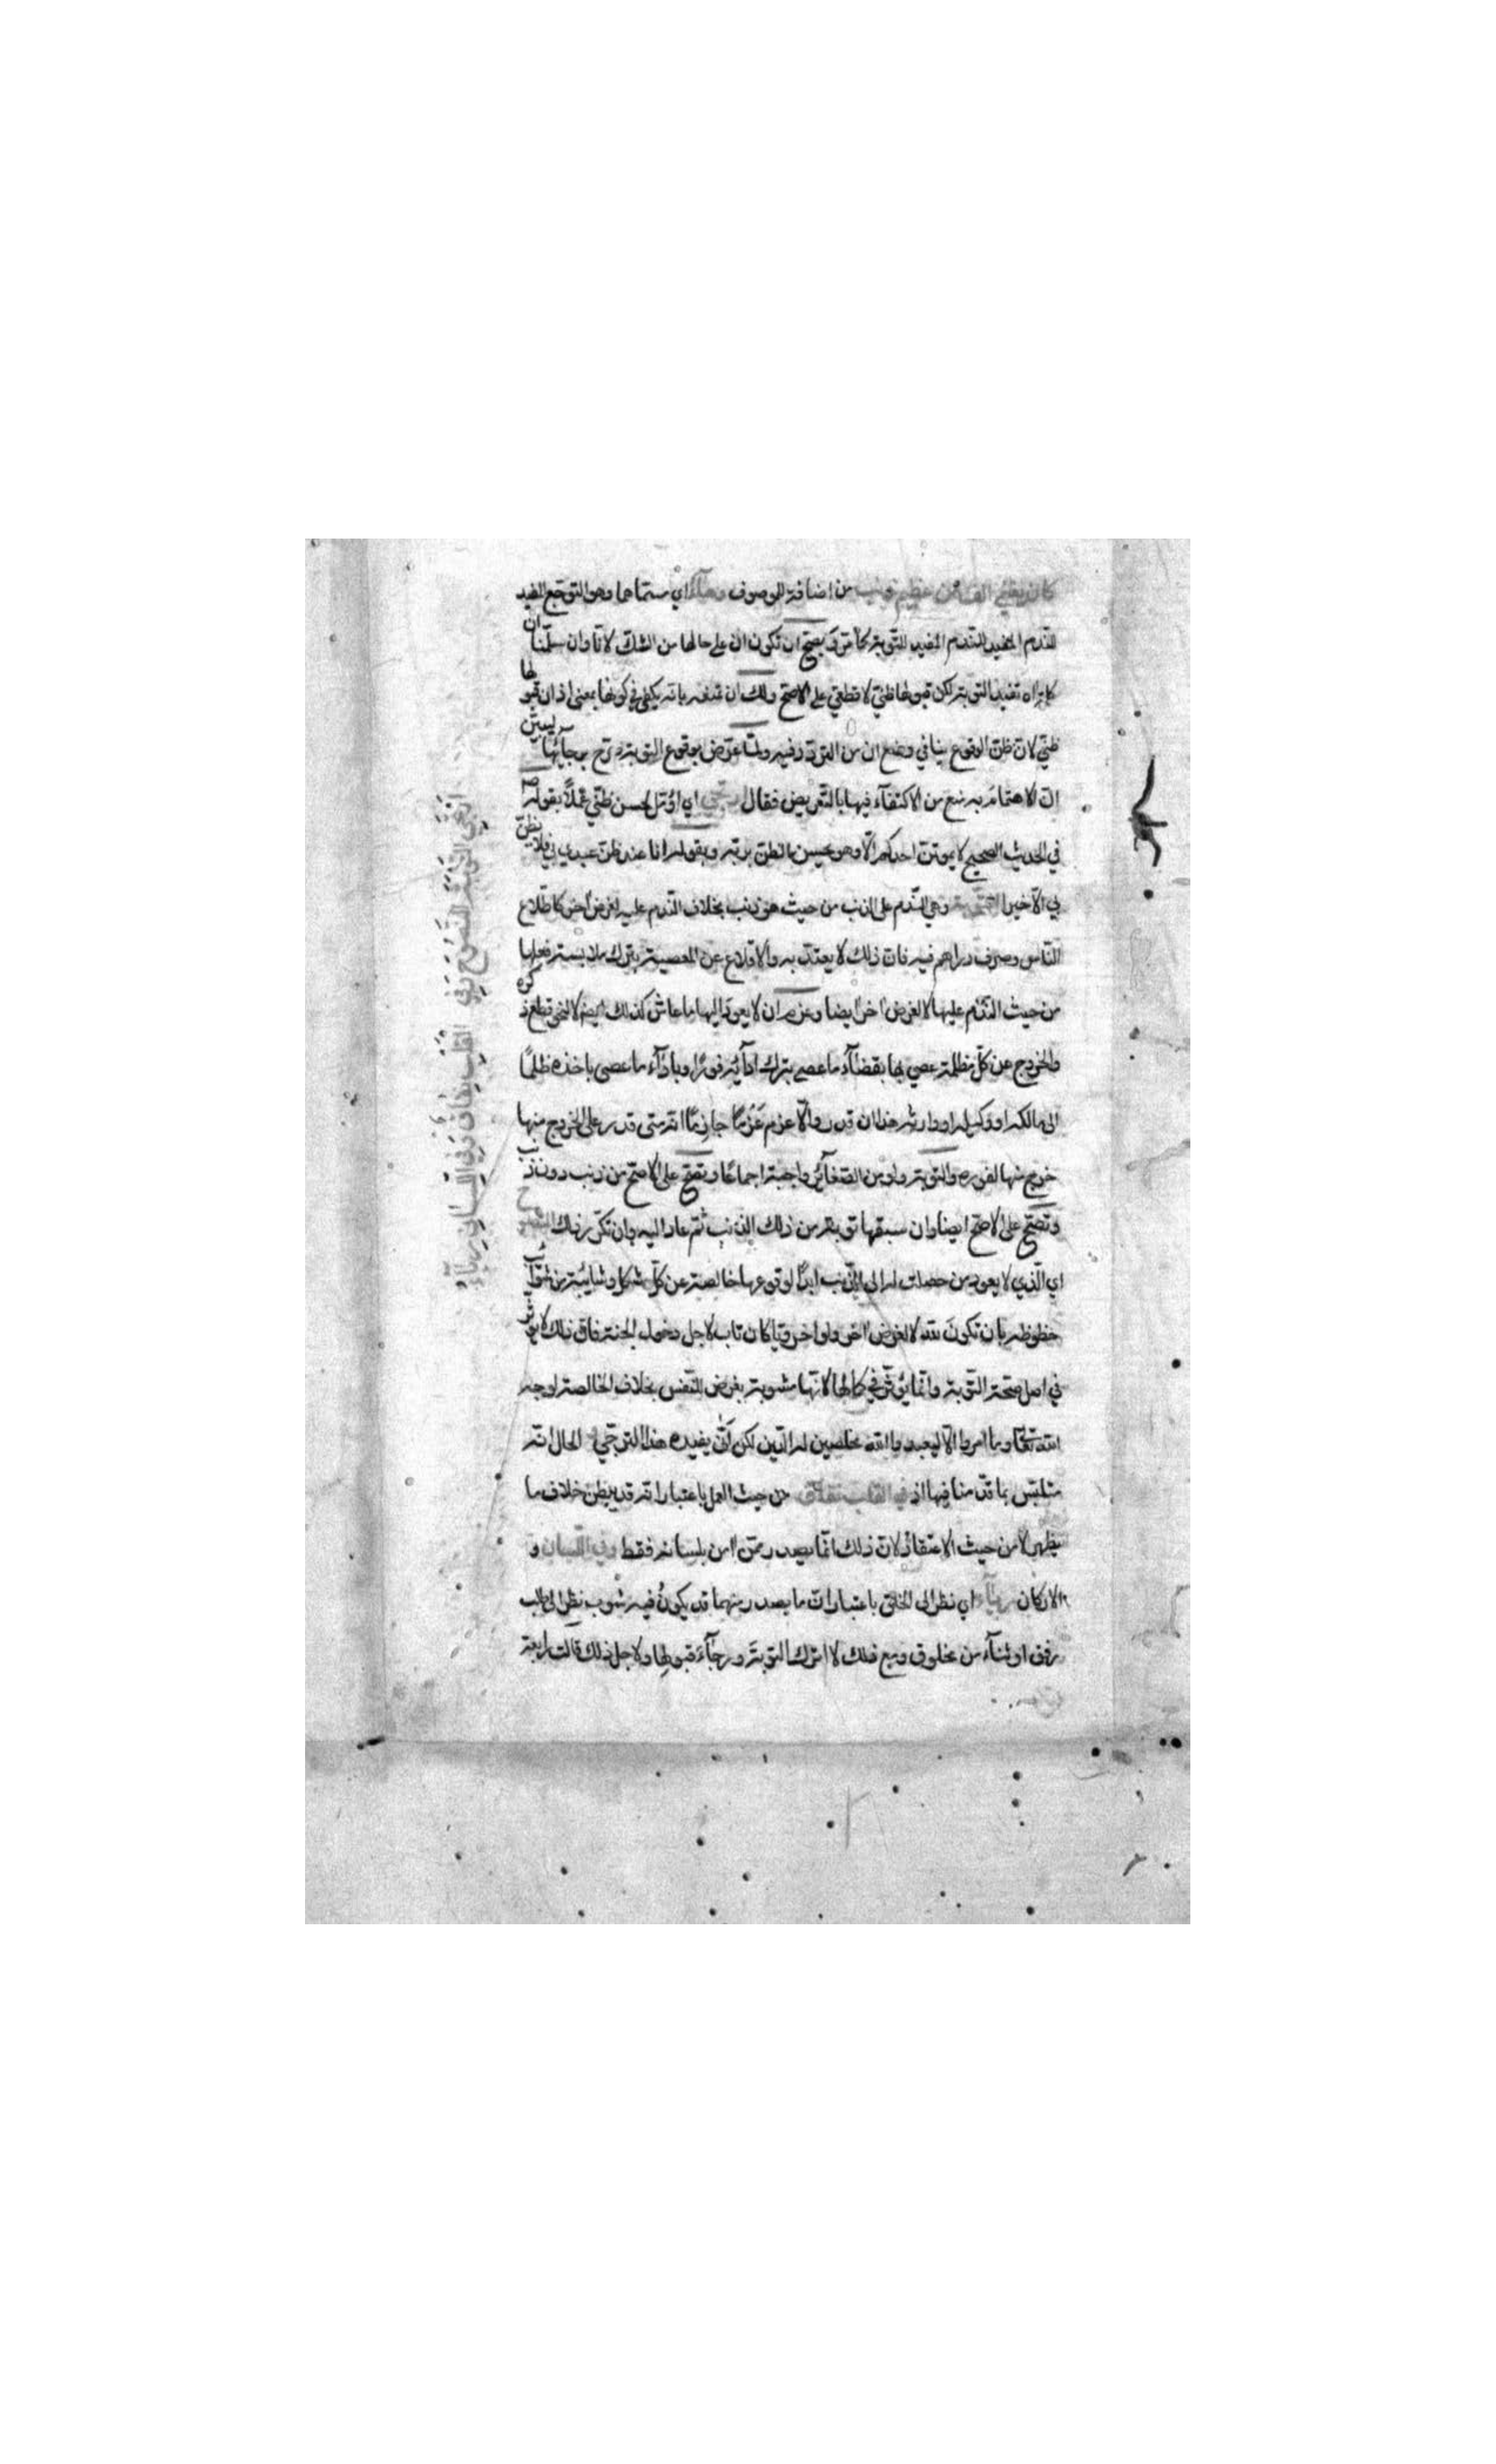 من اضافة الموصوف اي سيتماهما وهو التوجع المفيد
للندم المفيد للندم المفيد للتوبة كما مر يصح ان تكون ان على حالها من الشك لانا وان سلمنا ان
تفيد التوبة لكن قبولها ظني لا قطعي على الاصح ولك ان بانه يكفي في كونها بمعنى اذ ان قبولها
ظني لان ظن الوقوع ينافي وضع ان من التردد فيه ولما عرض بوقوع التوبة برجائها ليبين
ان الاهتمام به منع من الاكتفاء فيها بالتعريض فقال ارتجي اي اؤمل لحسن ظني عملا بقوله
في الحديث الصحيح لا يموتن احدكم الا وهو يحسن الظن بربه وبقوله انا عند ظن عبدي بي فلا يظن
بي الا خيرا التوبة وهي الندم على الذنب من حيث هو ذنب بخلاف الندم عليه لغرض اخر كاطلاع
الناس وصرف دراهم فيه فان ذلك لا يعتد به والاقلاع عن المعصية بترك ملابسة فعلها
من حيث الندم عليها لا لغرض اخر ايضا وعزم ان لا يعود اليها ما عاش كذلك ايضا لا لنحو قطع ذكره
والخروج عن كل مظلمة عصي بها بقضاء ما عصى بترك ادائه فورا وباداء ما عصى باخذه ظلما
الى مالكه او وكيله او وارثه هذا ان قدر والا عزم عزما جازما انه متى قدر على الخروج منها
خرج منها لفوره والتوبة ولو من الصغائر واجبة اجماعا وتصح على الاصح من ذنب دون ذنب
وتصح على الاصح ايضا وان سبقها توبة من ذلك الذنب ثم عاد اليه وان تكرر ذلك النصوح
اي الذي لا يعود من حصلت له الى الذنب ابدا لوقوعها خالصة عن كل شك وشايبة من شوائب
حظوظه بان تكون لله لا لغرض اخر ولو اخرويا كان تاب لاجل دخول الجنة فان ذلك لا يؤثر
في اصل صحة التوبة وانما يؤثر في كمالها لانها مشوبة بغرض للنفس بخلاف الخالصة لوجه
الله تعالى وما امروا الا ليعبدوا الله مخلصين له الدين لكن انى يفيده هذا الترجي الحال انه
متلبس بما قد منافيها اذ في القلب نفاق من حيث العمل باعتبار انه قد يبطن خلاف ما
يظهر لا من حيث الاعتقاد لان ذلك انما يصدر ممن امن بلسانه فقط وفي اللسان و
الاركان رياء اي نظر الى الخلق باعتبار ان ما يصدر منهما قد يكون فيه شوب نظر الى طلب
رزق او ثناء من مخلوق ومع ذلك لا اترك التوبة ورجاء قبولها ولاجل ذلك قالت رابعة
ارتجي التوبة النصوح وفي القلب نفاق وفي اللسان رياء